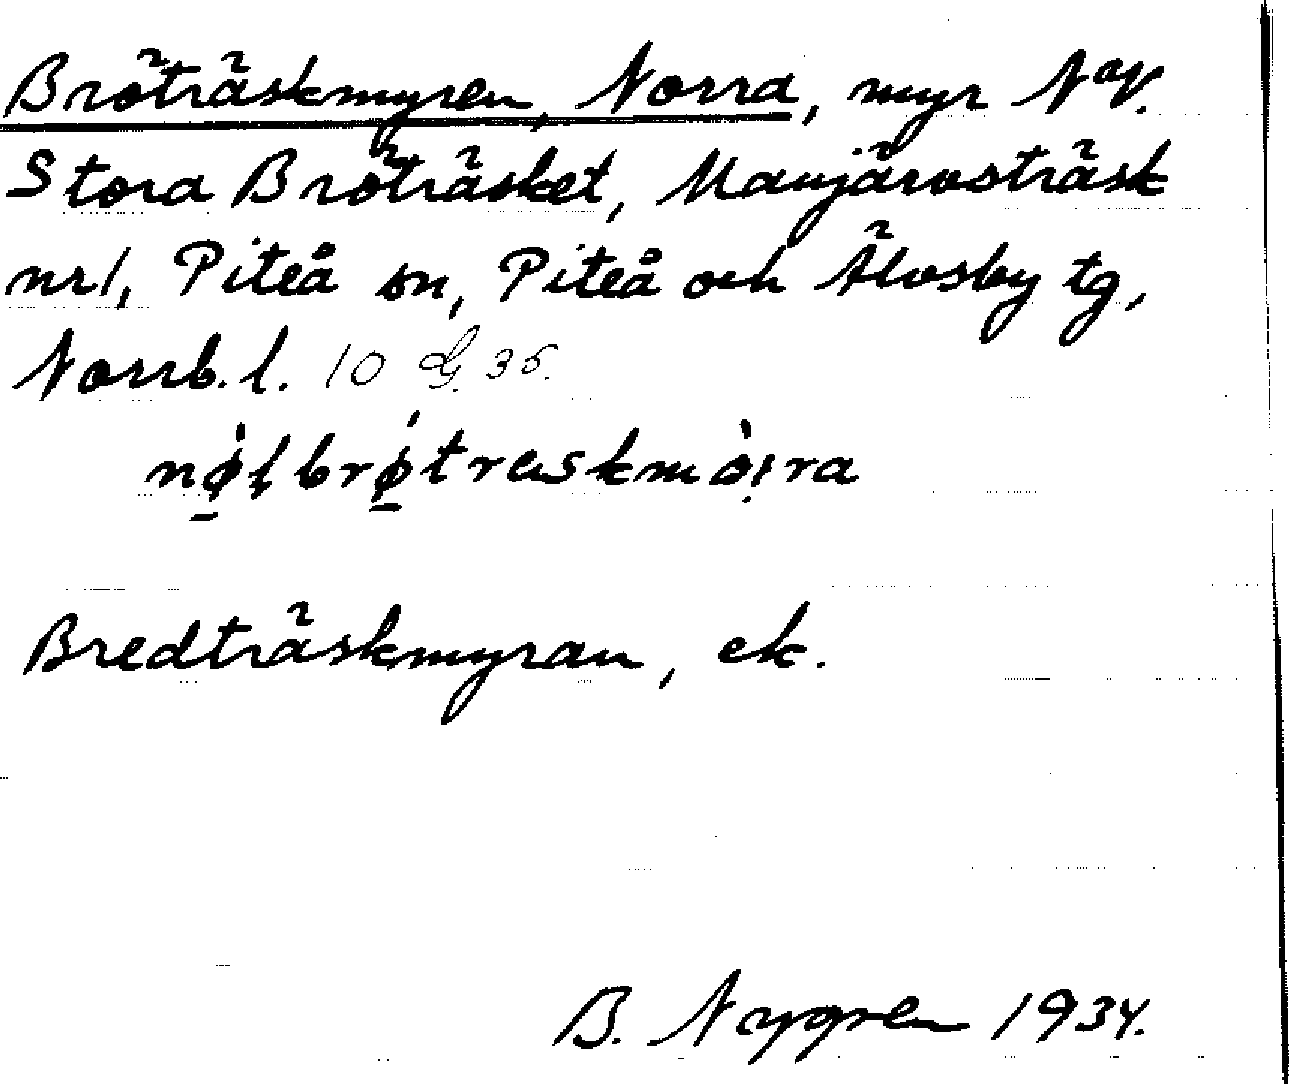 Bröträskmyren, Norra, myr N av.
Stora Bröträsket, Manjärvsträsk
nr 1, Piteå sn, Piteå och Älvsby tg,
Norrb. l. 10 G. 35.
nø̀ḷbrø̀traskmò̤ra
Bredträskmyran, ek.
B. Nygren 1934.